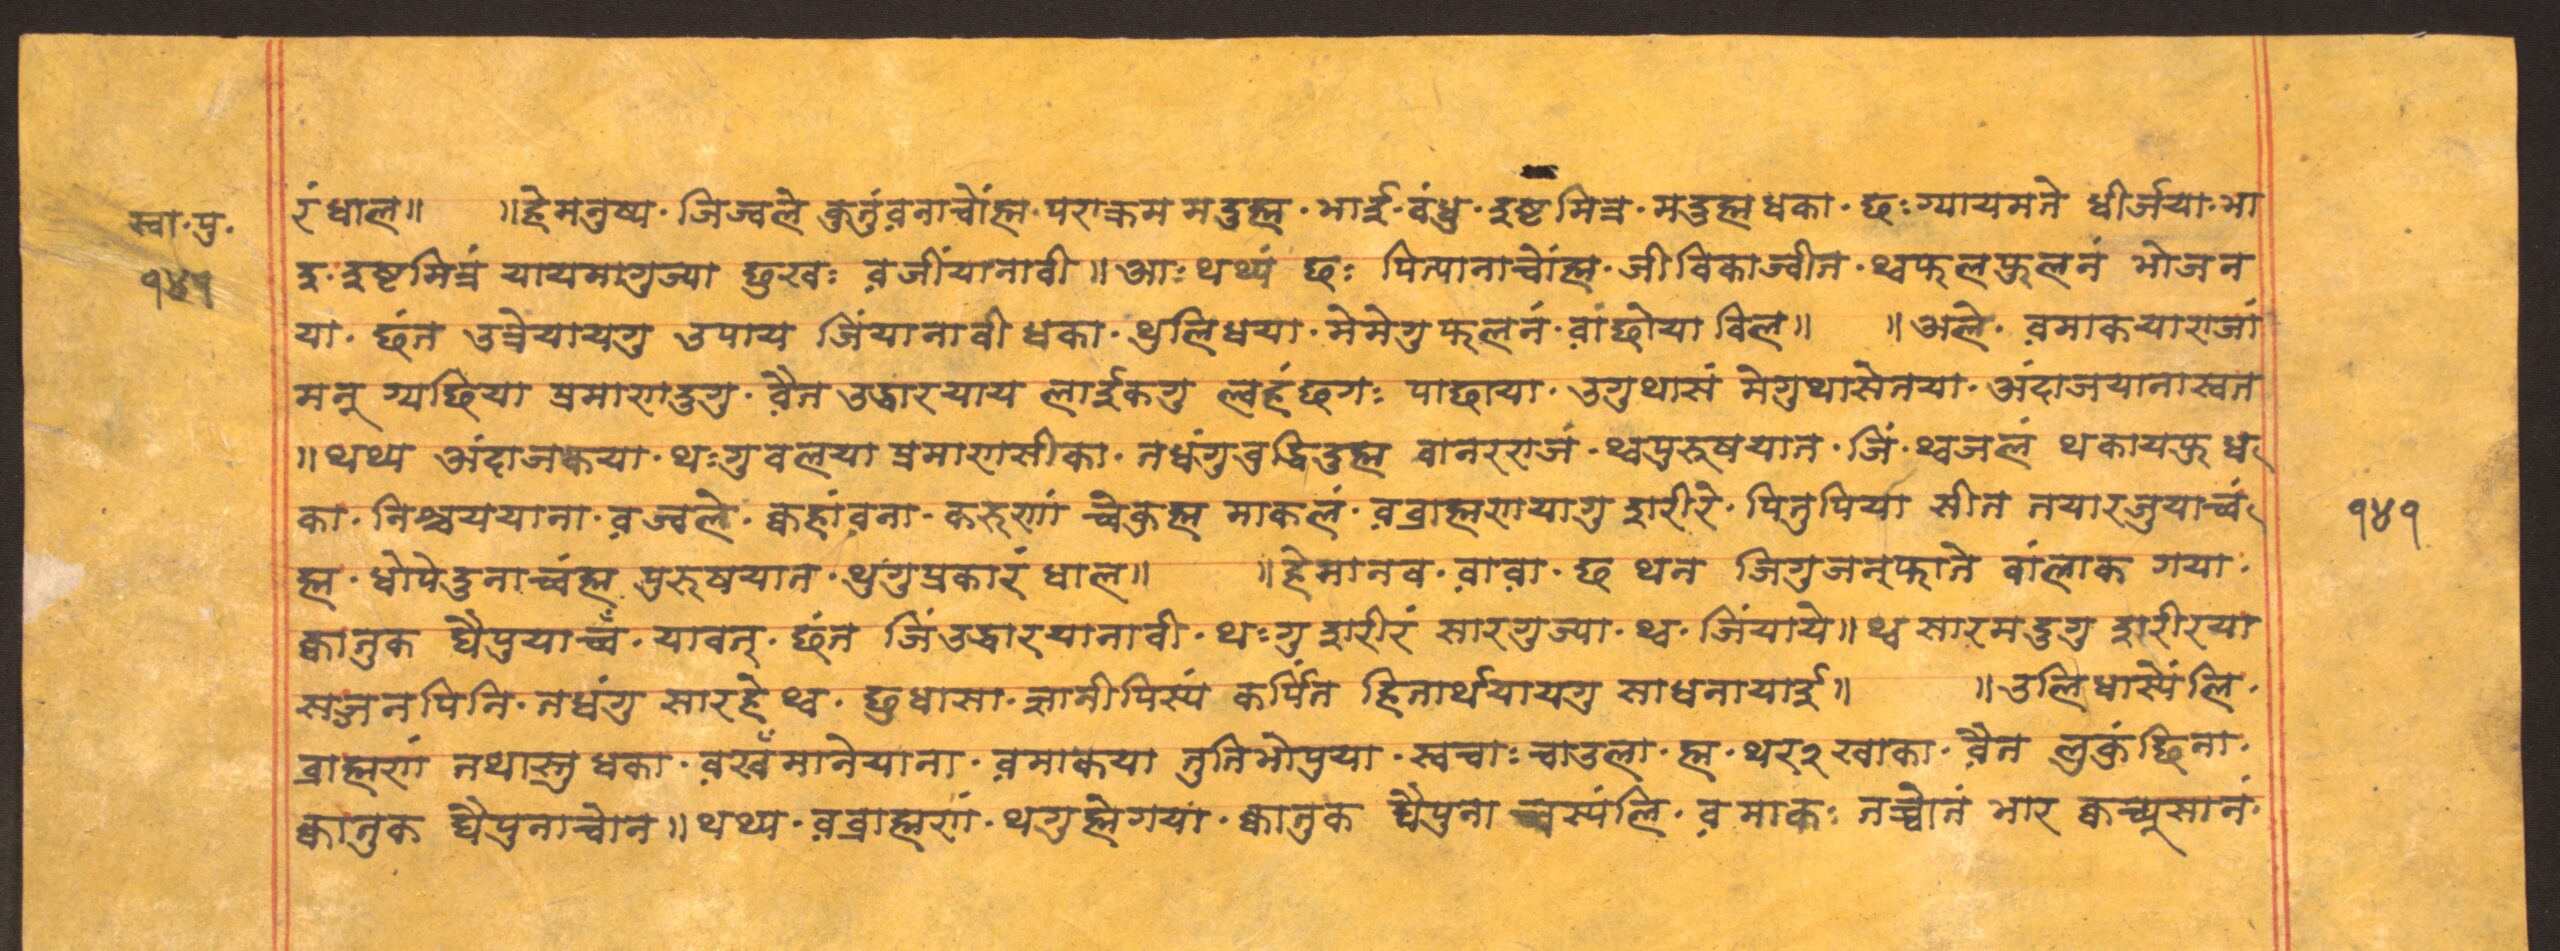 स्वा॰पु॰
१४१
रं धाल॥ ॥हेमनुष्य॰जिज्वले कुतुंव़नाचोंह्म॰पराक्रम मदुह्म॰भाई॰वंधु॰इष्टमित्र॰मदुह्मधका॰छःग्यायमते धीर्जया॰भा
इ॰इष्टमित्रं यायमागुज्या छुखः व़जींयानावी॥आःथथ्यं छः पित्यानाचोंह्म॰जीविकाज्वीत॰थ्वफलफुलनं भोजन
या॰छंत उत्रेयायगु उपाय जिंयानावी धका॰थुलिधया॰मेमेगुफलनं॰व़ांछोया विल॥ ॥अले॰व़माकयाराजां
मनू ग्यछिया प्रमाणदुगु॰व़ैत उद्धारयाय लाईकगु ल्वहंछगः पाछाया॰उगुथासं मेगुथासेतया॰अंदाजयानास्वत
॥थथ्य अंदाजकया॰थःगुवलया प्रमाणसीका॰तधंगुवुद्धिदुह्म वानरराजं॰थ्वपुरुषयात॰जिं॰थ्वजलं थकायफु ध
का॰निश्चययाना॰व़ज्वले॰क्वहांव़ना॰करुणां च्वेकुह्म माकलं॰व़व्राह्मणयागु शरीरे॰पितुपिया सीत तयारजुयाच्वं
ह्म॰धोपेदुनाच्वंह्म पुरुषयात॰थुगुप्रकारं धाल॥ ॥हेमानव॰व़ाव़ा॰छ थन जिगुजनूफाते वांलाक गया॰
क्वातुक घैपुयाच्वँ॰यावत्॰छंत जिंउद्धारयानावी॰थःगु शरीरं सारगुज्या॰थ्व॰जिंयाये॥थ्व सारमदुगु शरीरया
सज्जनपिनि॰तधंगु सारहे थ्व॰छुधासा॰ज्ञानीपिस्यं कर्पिंत हितार्थयायगु साधनायाई॥ ॥उलिधास्येंलि॰
व्राह्मणं तथास्तु धका॰व़खँमानेयाना॰व़माकया तुतिभोपुया॰स्वचाःचाउला॰ह्म॰थर२खाका॰व़ैत लुकुंछिना॰
क्वातुक घैपुनाच्वोन॥थथ्य॰व़व्राह्मणं॰थगुह्मेगया॰क्वातुक घैपुना च्वस्यंलि॰व़ माकः तच्वोतं भार क्वच्यूसानं॰
१४१